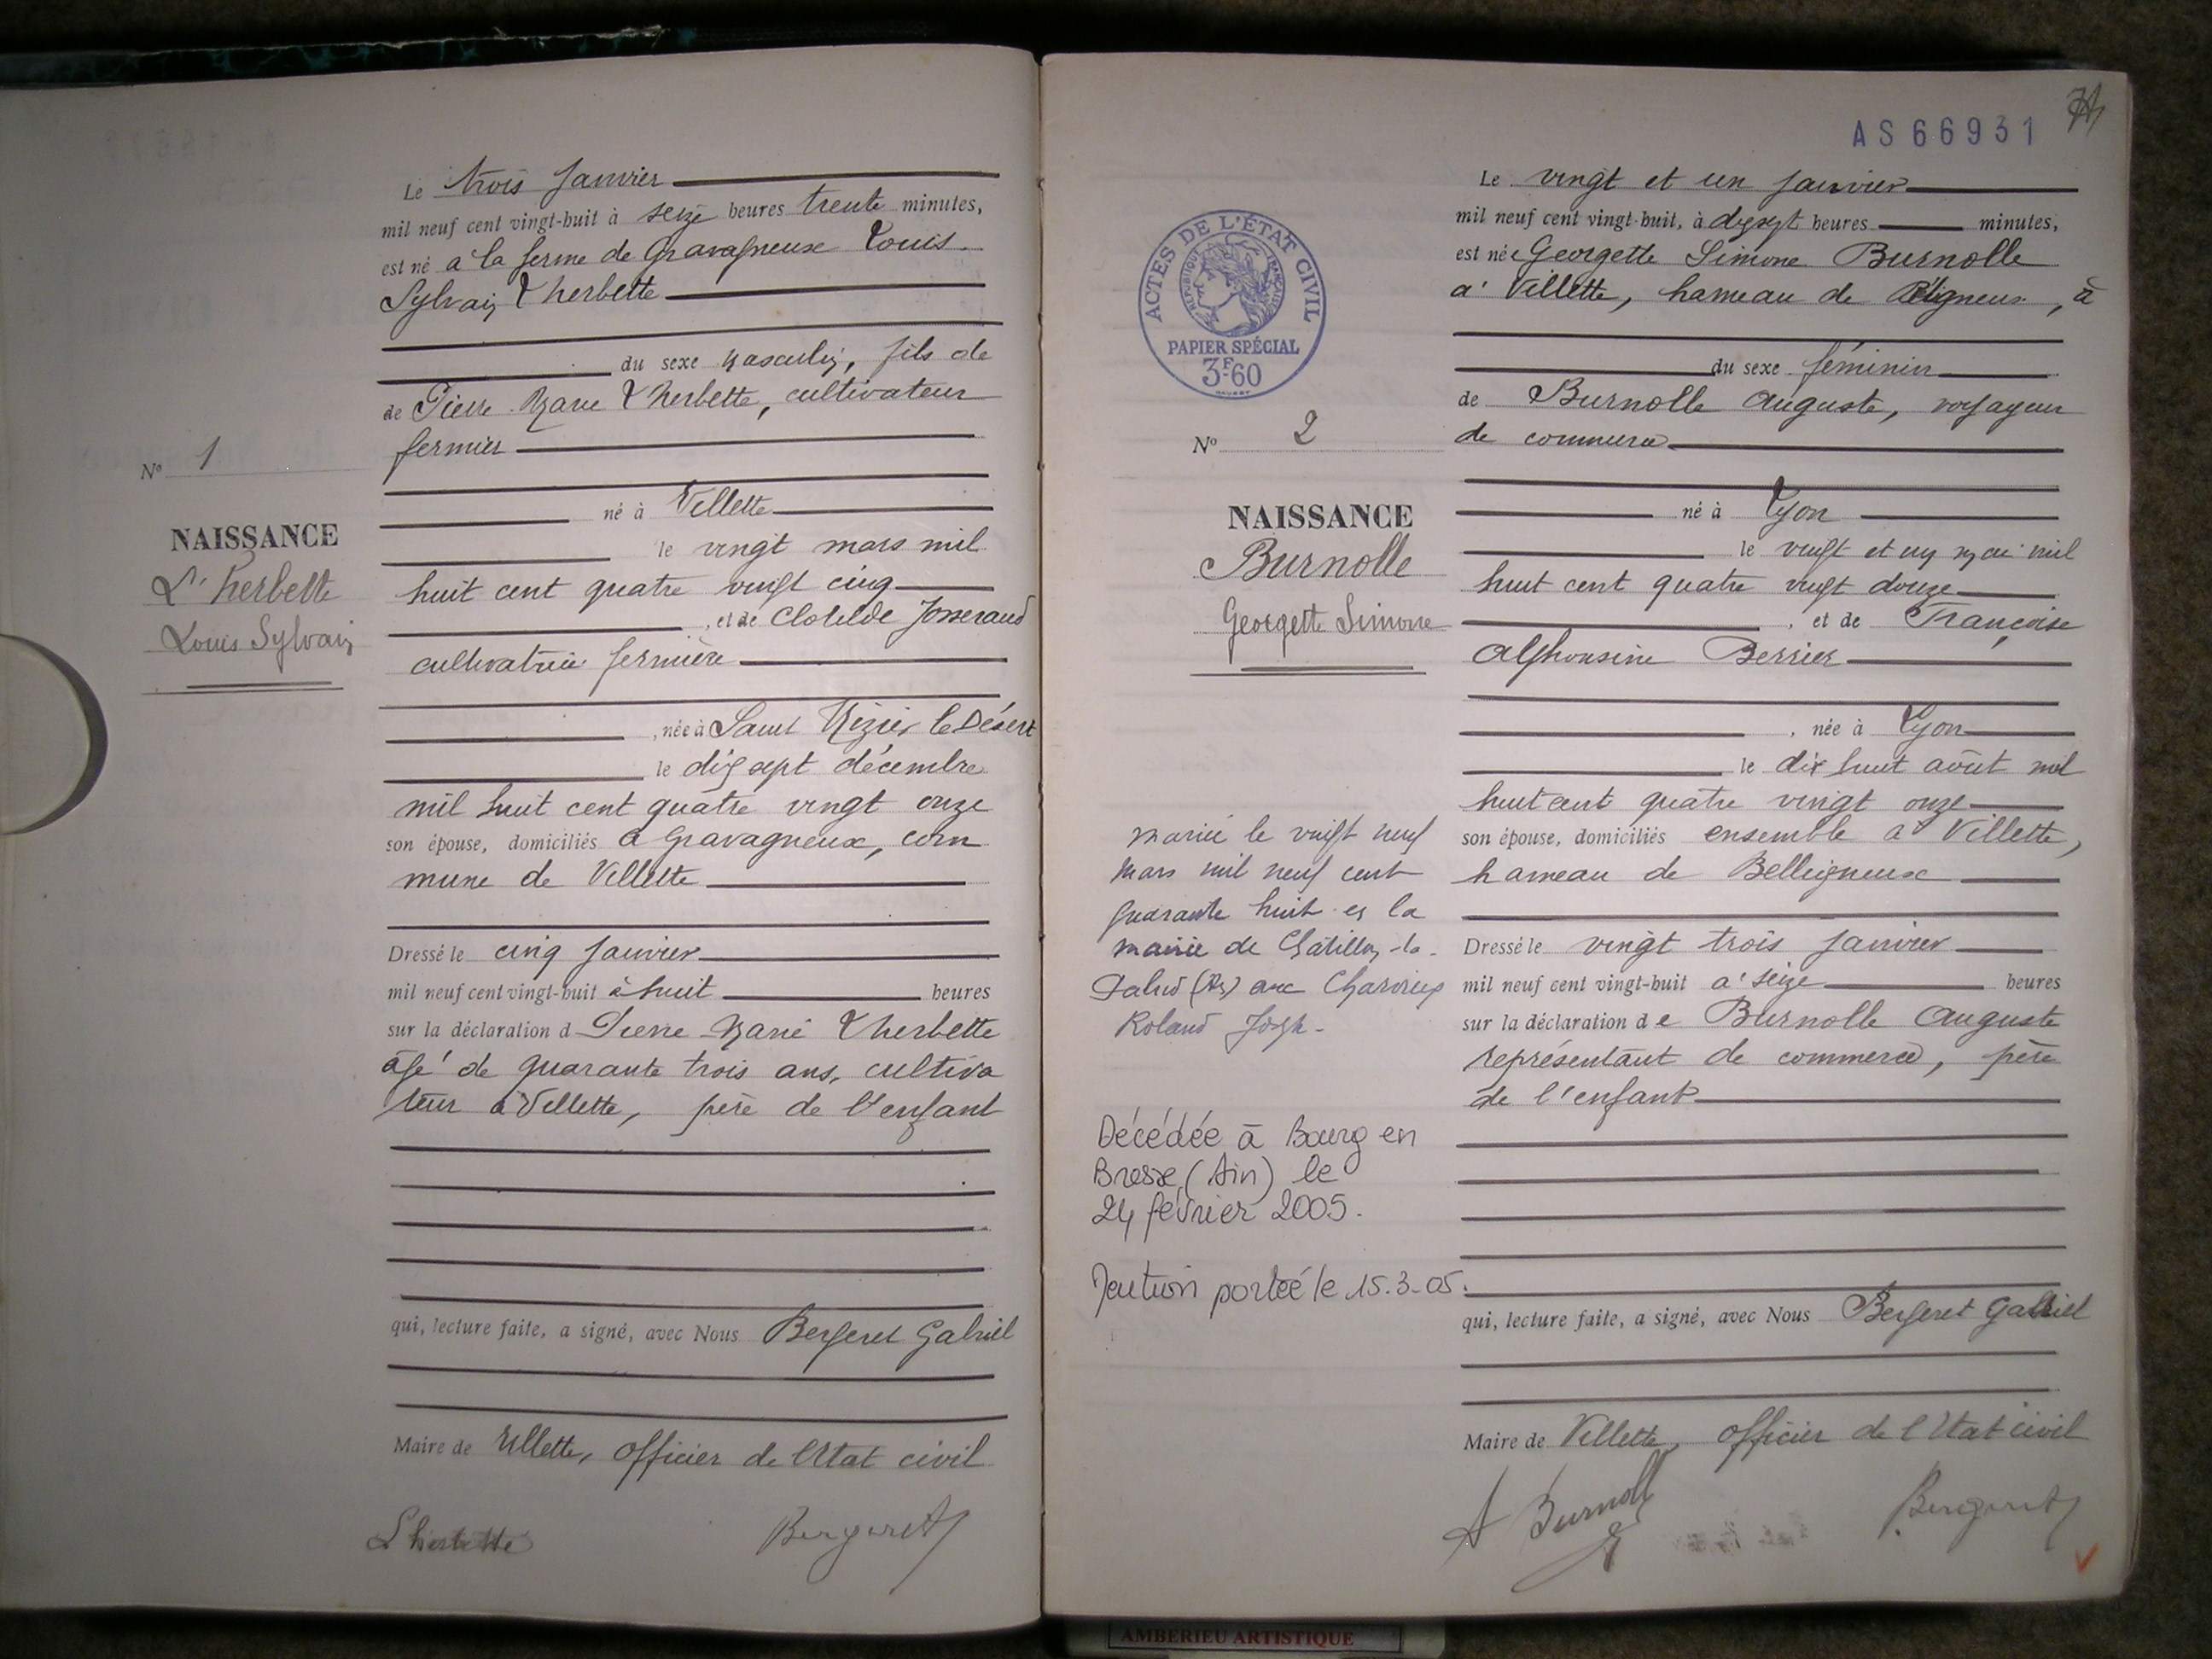 Le trois Janvier
mil neuf cent vingt-huit à seize heures trente minutes,
est né à la ferme de Gravagneux Louis
Sylvain Lherbette
du sexe masculin, fils de
de Pierre Marie Lherbette, cultivateur
fermier
N° 1
né à Villette
NAISSANCE
le vingt mars mil
L'herbette
huit cent quatre vingt cinq
, et de Clotilde Josserand
Louis Sylvain
cultivatrice fermière
, née à Saint Nizier le Désert
le dix sept décembre
mil huit cent quatre vingt onze
son épouse, domiciliés à Gravagneux, com
mune de Villette
Dressé le cinq Janvier
mil neuf cent vingt-huit à huit heures
sur la déclaration d Pierre Marie Lherbette
âgé de quarante trois ans, cultiva
teur à Villette, père de l'enfant
qui, lecture faite, a signé, avec Nous Bergeret Gabriel
Maire de Villette, officier de l'Etat civil
Lherbette Bergeret
AS66931
Le vingt et un janvier
mil neuf cent vingt-huit, à dix sept heures minutes,
est née Georgette Simone Burnolle
à Villette, hameau de , à
ACTES DE L'ÉTAT CIVIL
RÉPUBLIQUE FRANÇAISE
PAPIER SPÉCIAL
3F60
du sexe féminin
de Burnolle Auguste, voyageur
de commerce
N° 2
né à Lyon
NAISSANCE
le vingt et un mai mil
Burnolle
huit cent quatre vingt douze
Georgette Simone
, et de Françoise
Alphonsine Berrier
, née à Lyon
le dix huit août mil
huit cent quatre vingt onze
son épouse, domiciliés ensemble à Villette,
hameau de Belligneux
Dressé le vingt trois Janvier
mil neuf cent vingt-huit à seize heures
sur la déclaration de Burnolle Auguste
représentant de commerce, père
de l'enfant
mariée le vingt neuf
mars mil neuf cent
quarante huit en la
mairie de Châtillon-la-
Palud (Ain) avec
Roland
Décédée à Bourg en
Bresse (Ain) le
24 février 2005.
Mention portée le 15.3.05.
qui, lecture faite, a signé, avec Nous Bergeret Gabriel
Maire de Villette, officier de l'Etat civil
A Burnoll Bergeret
AMBERIEU ARTISTIQUE